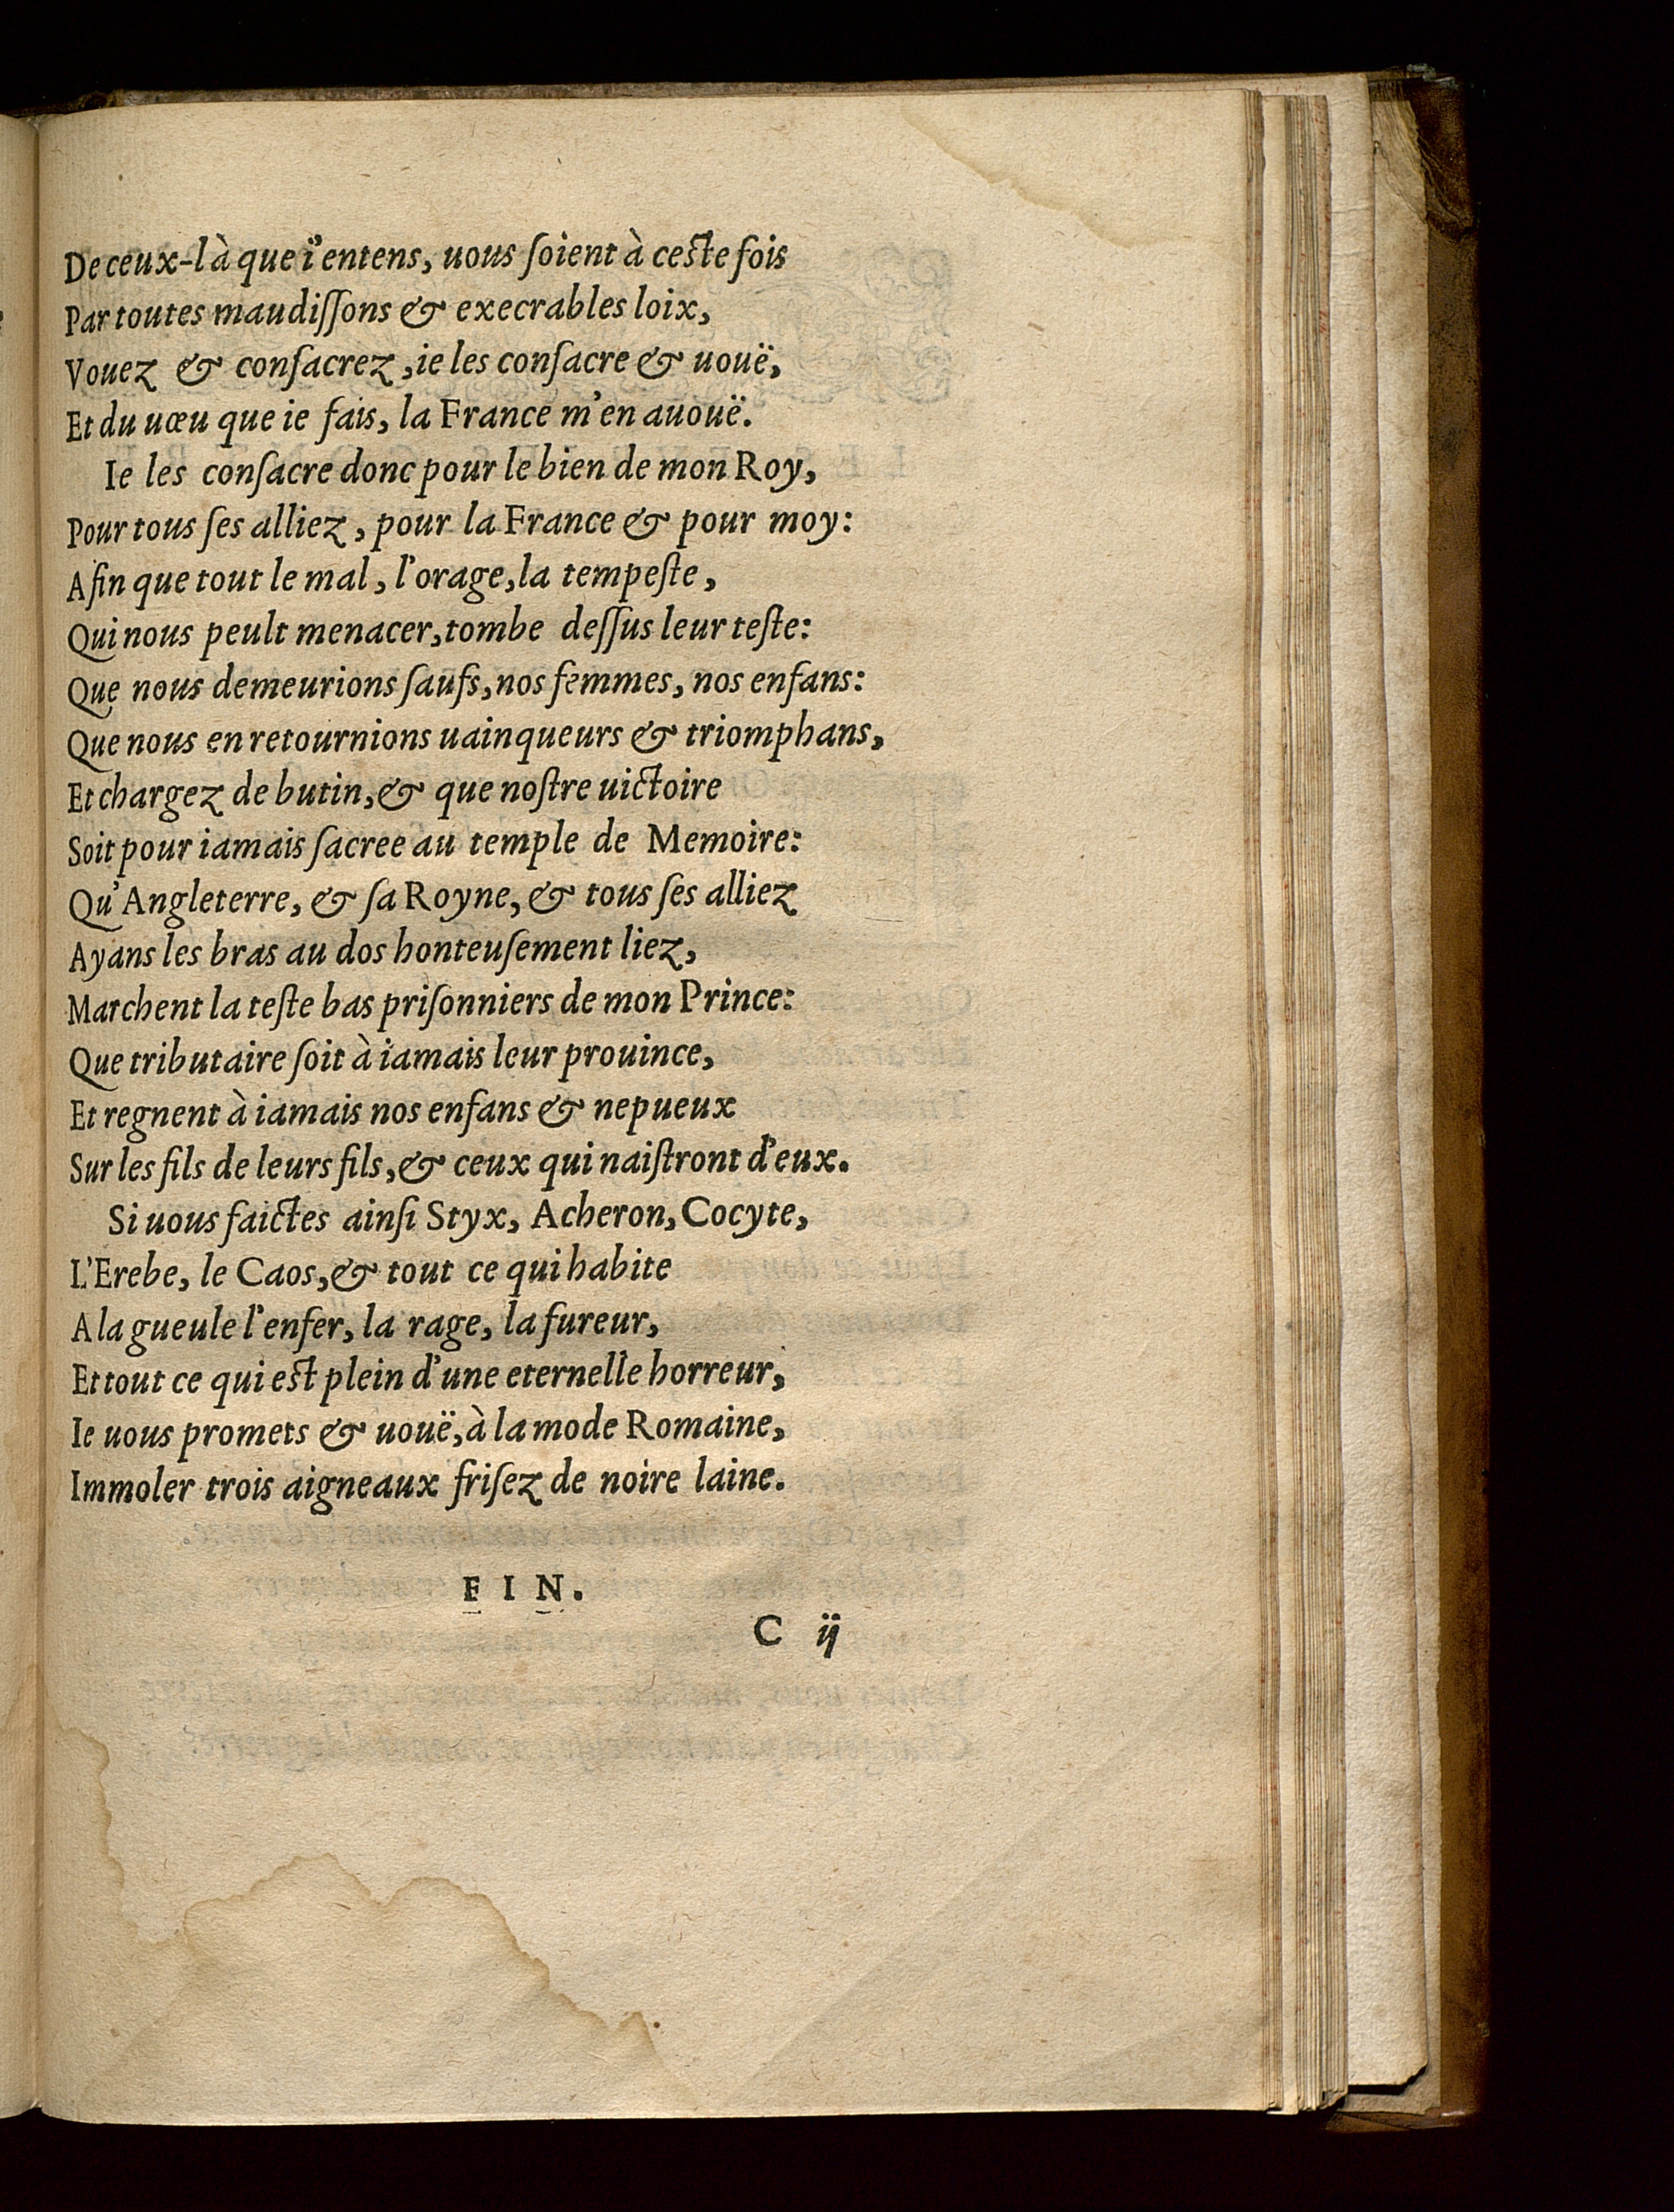 De ceux-là que i'entens, uous ſoient à ceſte fois
Par toutes maudiſſons & execrables loix,
Vouez & conſacrez, ie les conſacre & uouë,
Et du uœu que ie fais, la France m'en auouë.
Ie les conſacre donc pour le bien de mon Roy,
Pour tous ſes alliez, pour la France & pour moy:
Afin que tout le mal, l'orage, la tempeſte,
Qui nous peult menacer, tombe deſſus leur teſte:
Que nous demeurions ſaufs, nos femmes, nos enfans:
Que nous en retournions uainqueurs & triomphans,
Et chargez de butin, & que noſtre uictoire
Soit pour iamais ſacree au temple de Memoire:
Qu'Angleterre, & ſa Royne, & tous ſes alliez
Ayans les bras au dos honteuſement liez,
Marchent la teſte bas priſonniers de mon Prince:
Que tributaire ſoit à iamais leur prouince,
Et regnent à iamais nos enfans & nepueux
Sur les fils de leurs fils, & ceux qui naiſtront d'eux.
Si uous faictes ainſi Styx, Acheron, Cocyte,
L'Erebe, le Caos, & tout ce qui habite
A la gueule l'enfer, la rage, la fureur,
Et tout ce qui eſt plein d'une eternelle horreur,
Ie uous promets & uouë, à la mode Romaine,
Immoler trois aigneaux friſez de noire laine.
FIN.
C ij